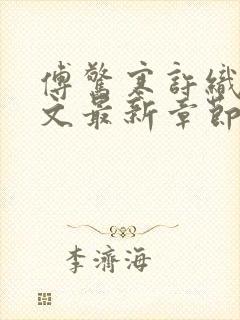 傅驚寒許織
文最新章節
李濟海